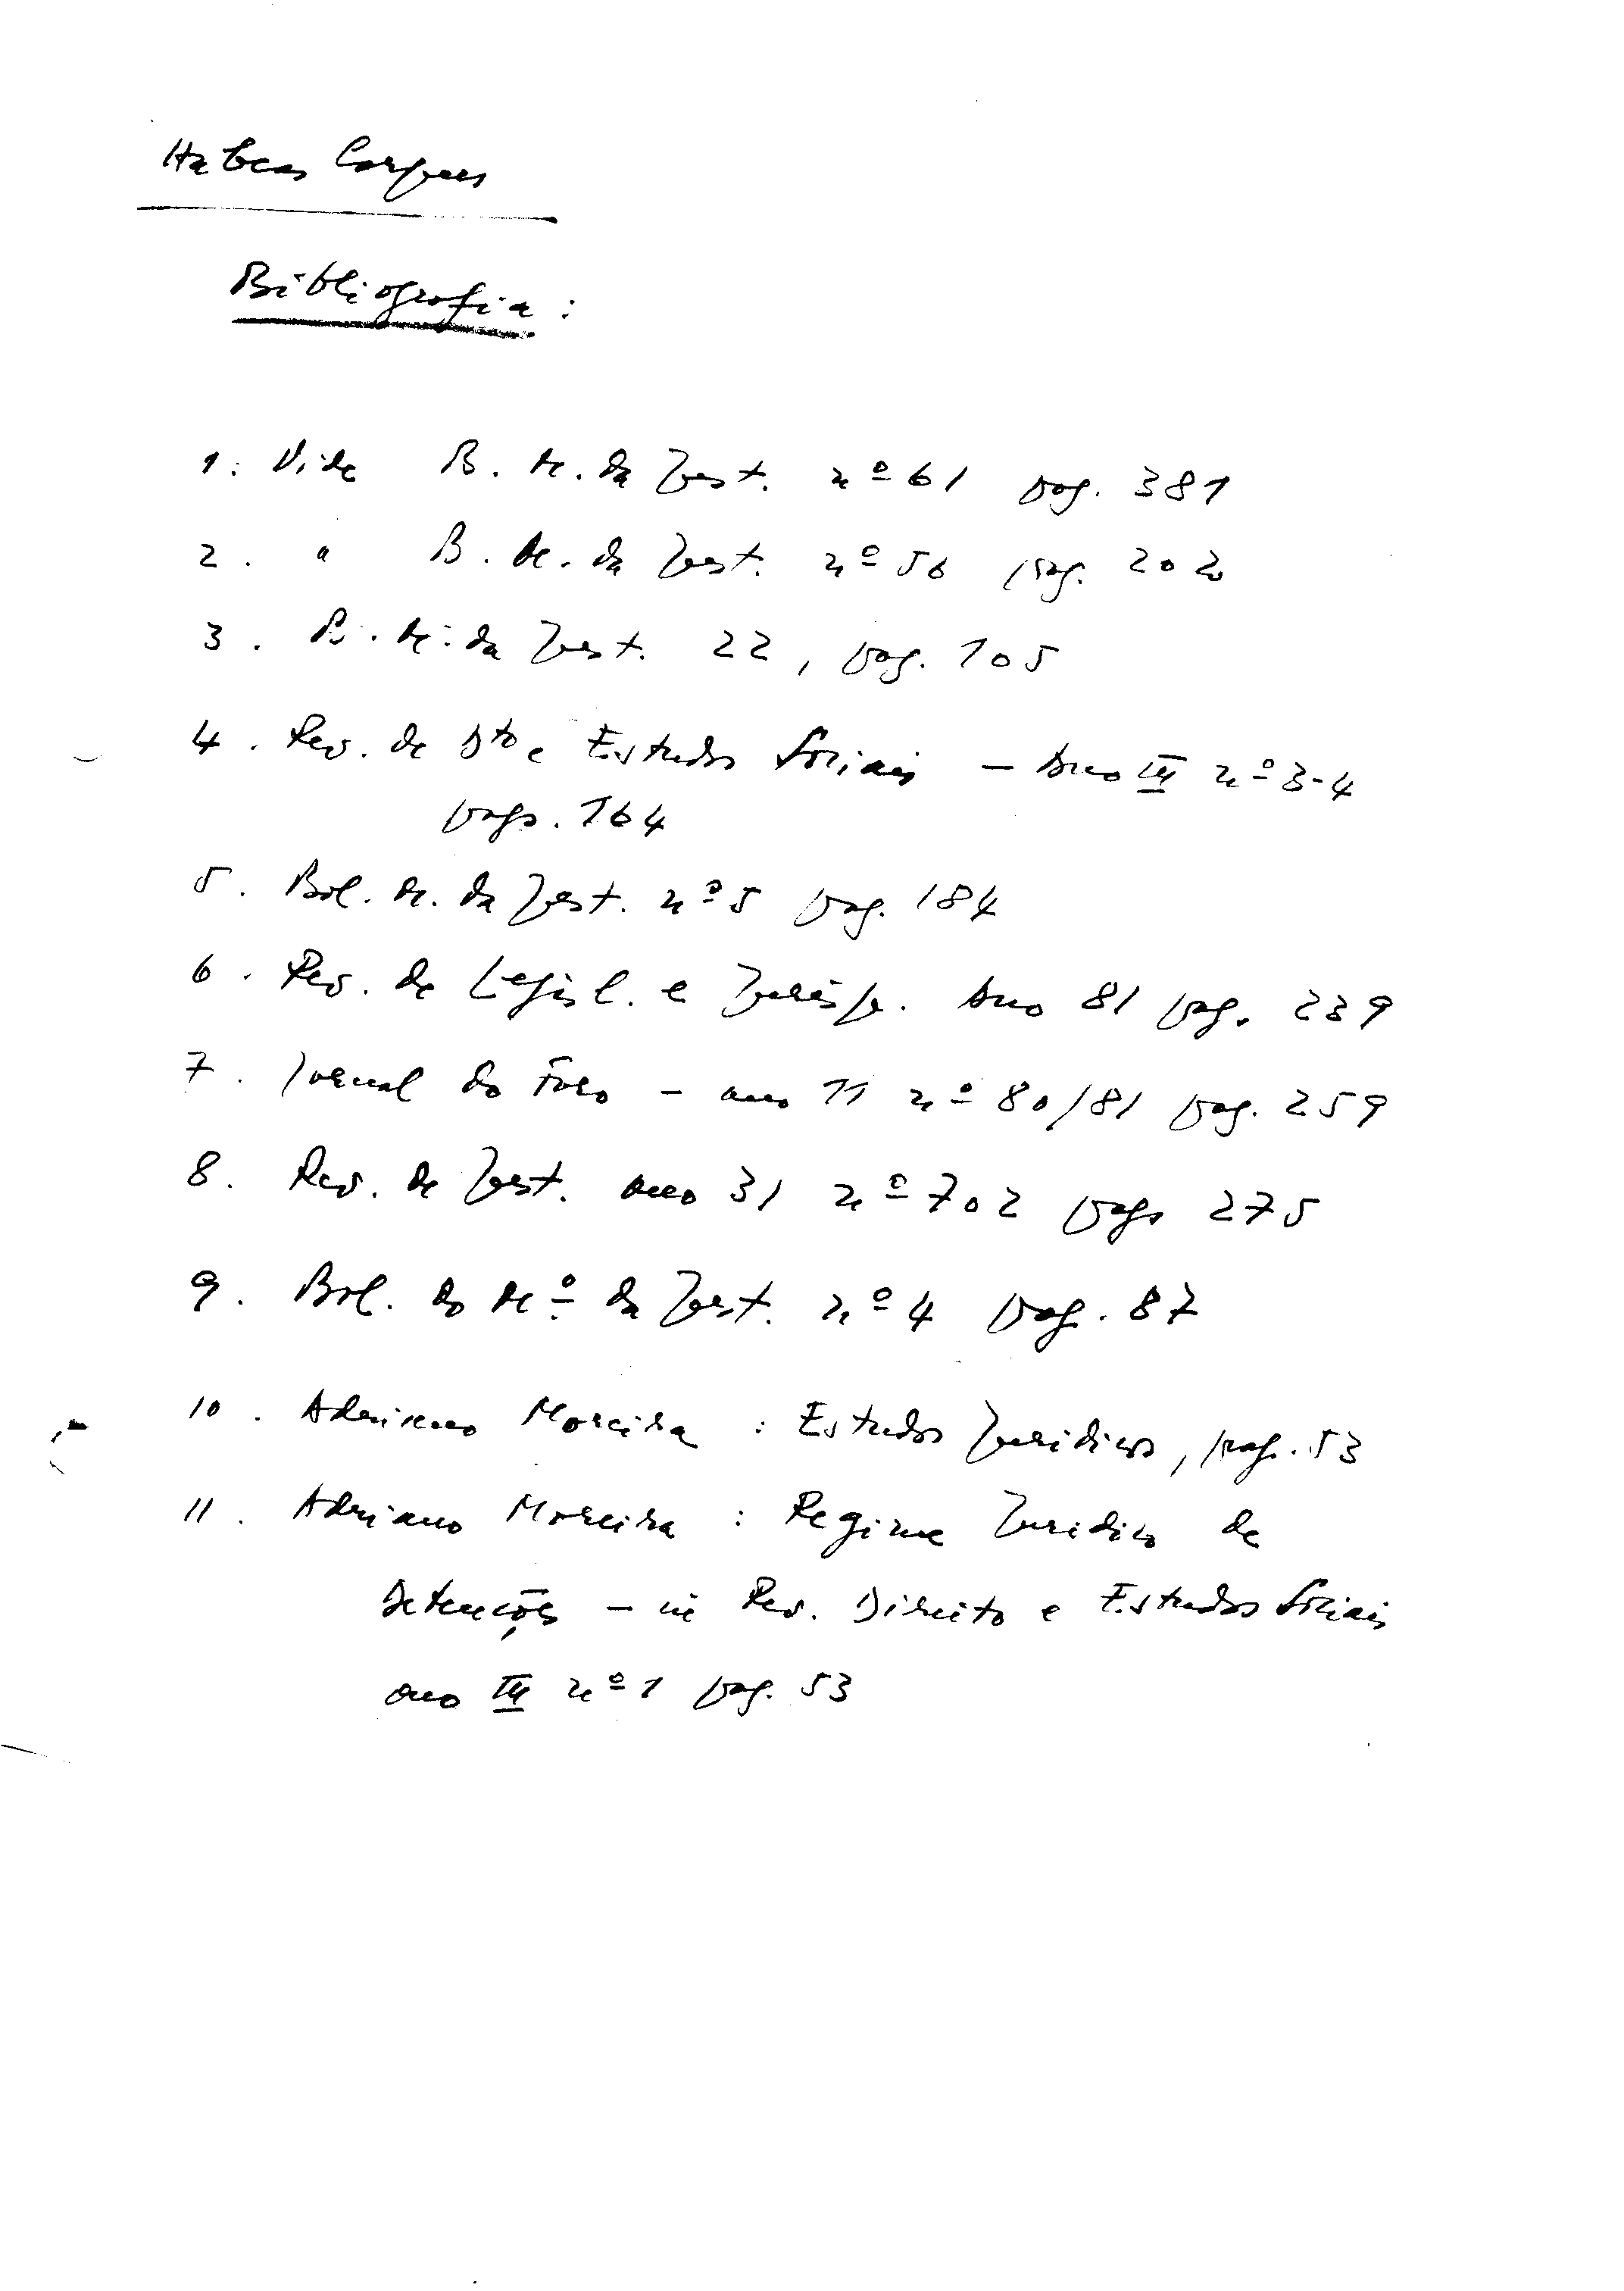 Habeas Corpus
Bibliografia :
1. Vide B. M. da Just. nº 61 pag. 381
2. " B. M. da Just. nº 56 pag. 202
3. B. M. da Just. 22, pag. 105
4. Rev. de Dto e Estudos Sociais – Ano III nº 3-4
pags. 164
5. Bol. M. da Just. nº 5 pag. 184
6. Rev. de Legisl. e Jurisp. Ano 81 pag. 239
7. Jornal do Foro – ano 11 nº 80/81 pag. 259
8. Rev. de Just. ano 31 nº 702 pags 275
9. Bol. do Mº. da Just. nº 4 pag. 87
10. Adriano Moreira : Estudos Juridicos, pag. 53
11. Adriano Moreira : Regime Juridico de
Detenções – in Rev. Direito e Estudos Sociais
ano III nº 1 pag. 53